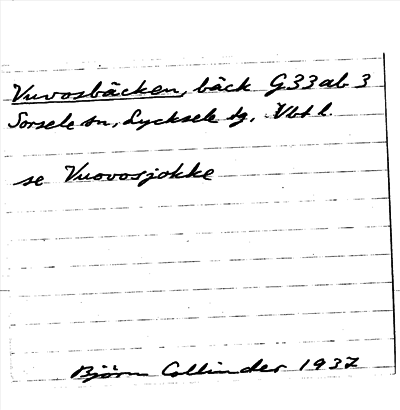 Vuvosbäcken, bäck G33ab 3
Sorsele sn, Lycksele tg, Vbt l.
se Vuovosjokke
Björn Collinder 1937